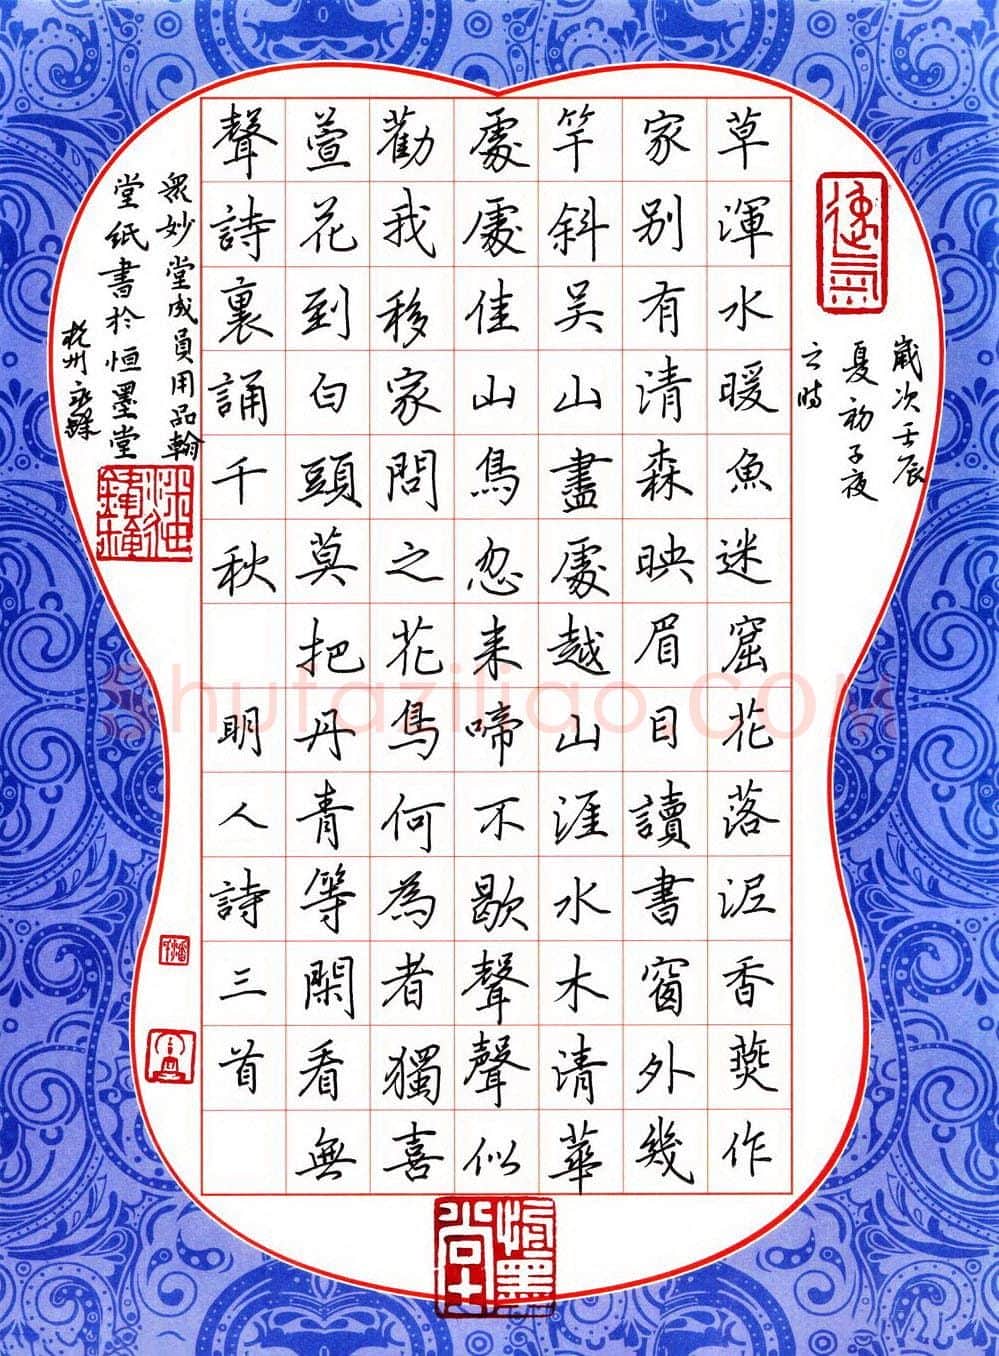 歲次壬辰
夏初子夜
云時
草渾水暖魚迷窟花落泥香燕作
家别有清森映眉目讀書窗外幾
竿斜吴山盡處越山涯水木清華
處處佳山鳥忽来啼不歇聲聲似
勸我移家問之花鳥何為者獨喜
萱花到白頭莫把丹青等閑看無
聲詩裏誦千秋 明人詩三首
眾妙堂成員用品翰
堂紙書於恒墨堂
杭州
恒墨堂
Shufaziliao.com